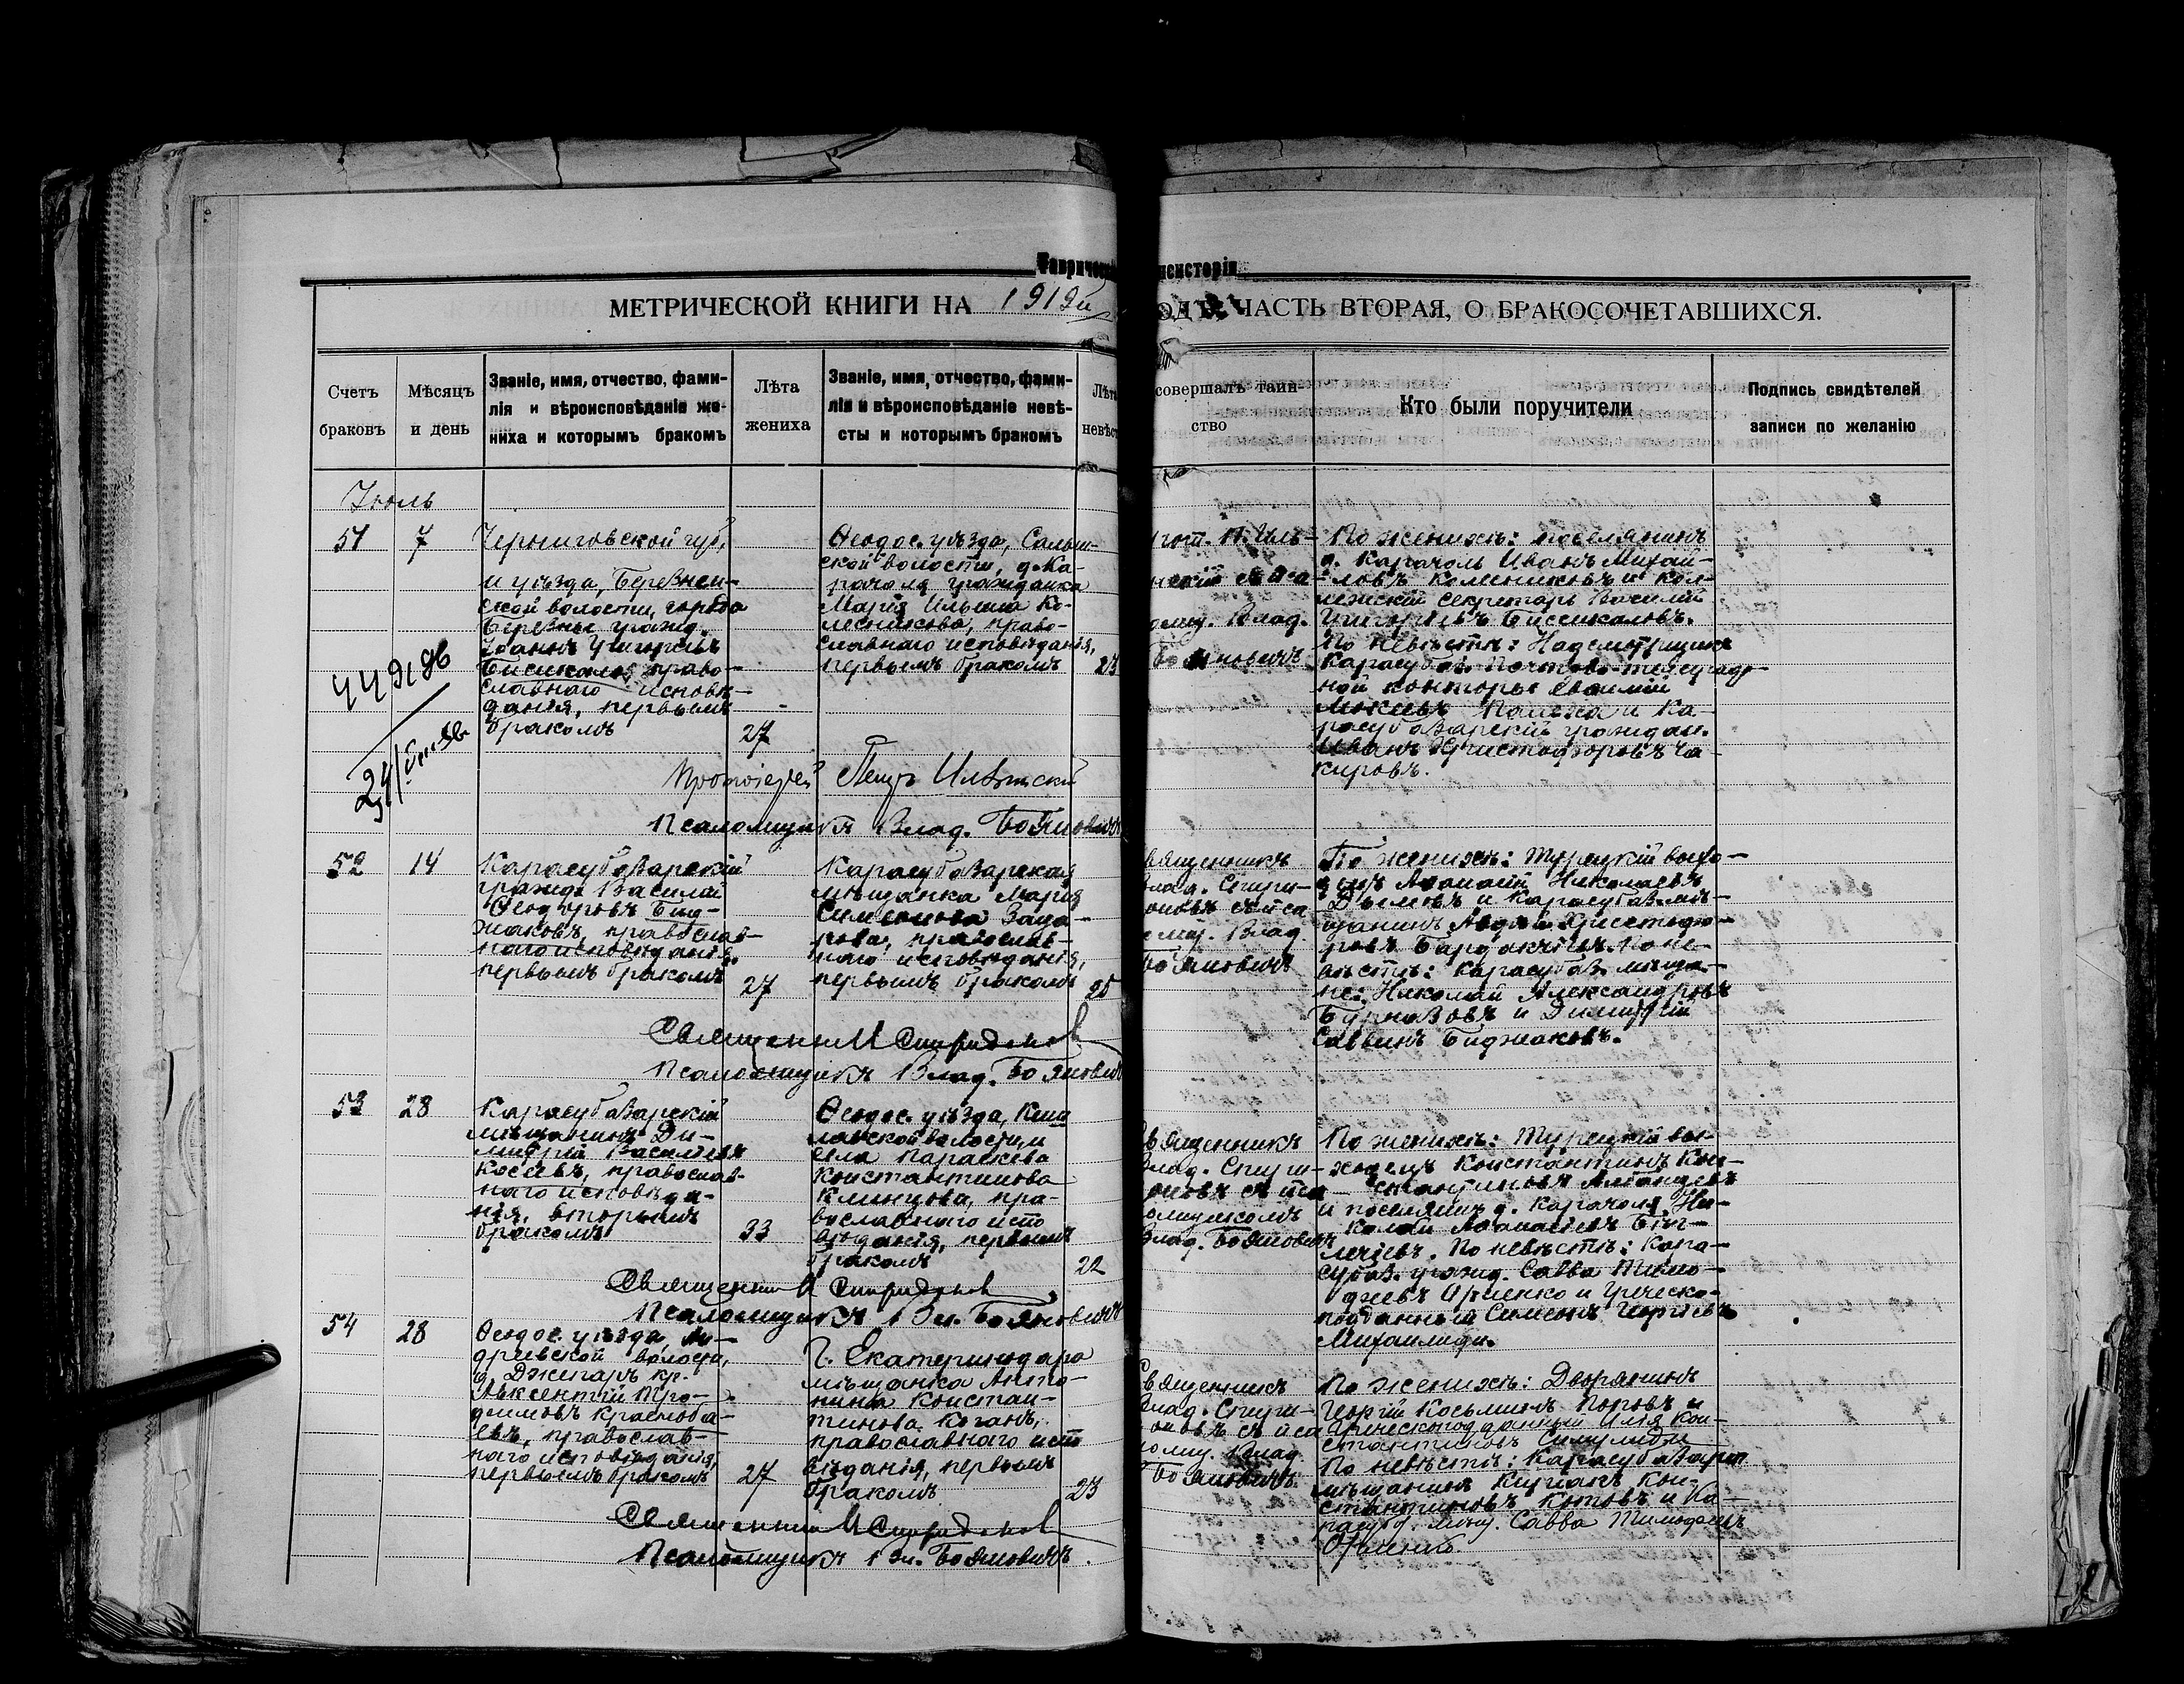 Таврическ
нсисторіи
МЕТРИЧЕСКОЙ КНИГИ НА 1919й
ОДЪ, ЧАСТЬ ВТОРАЯ, О БРАКОСОЧЕТАВШИХСЯ.
Счетъ
браковъ
Мѣсяцъ
и день
Званіе, имя, отчество, фами-
лія и вѣроисповѣданіе же-
ниха и которымъ бракомъ
Лѣта
жениха
Званіе, имя, отчество, фами-
лія и вѣроисповѣданіе невѣ-
сты и которымъ бракомъ
Лѣта
невѣст
совершалъ таин-
ство
Кто были поручители
Подпись свидѣтелей
записи по желанію
Іюль
51
7
Черниговской губ,
и уѣзда, Березнен-
ской волости, города
Березны гражд.
Іоаннъ Григорьевъ
православнаго исповѣ-
данія, первымъ
бракомъ
27
Ѳеодос. уѣзда, Салын-
ской волости, д. Ка-
рачоля гражданка
Марія Ильина Ко-
лесникова, право-
славнаго исповѣданія,
первымъ бракомъ
23
прот. П. Иль-
нскій съ пса-
омщ. Влад.
Бояновичъ
По женихѣ: поселянинъ
д. Карачоль Иванъ Михай-
ловъ Колесниковъ и кол-
лежскій секретарь Василій
Григорьевъ
По невѣстѣ: Надсмотрщикъ
Карасубаз. Почтово-телеграф-
ной конторы
и Ка-
расубазарскій граждан.
Иванъ Христофоровъ Ча-
кировъ.
Протоіерей Петръ
Псаломщикъ Влад. Бояновичъ
52
14
Карасубазарскій
гражд. Василій
Ѳеодоровъ Бид-
жаковъ, православ-
наго исповѣданія,
первымъ бракомъ
27
Карасубазарская
мѣщанка Марія
Симеонова
православ-
наго исповѣданія,
первымъ бракомъ
25
вященникъ
Влад. Спири-
оновъ съ пса
омщ. Влад.
Бояновичъ
По женихѣ: Турецкій выхо-
децъ Аѳанасій Николаевъ
Дымовъ и Карасубаз. мѣ-
щанинъ Андрей Христофо-
ровъ По не-
вѣстѣ: Карасубаз. мѣща-
не: Николай Александровъ
Бурназовъ и Димитрій
Саввинъ Биджаковъ.
Священникъ В Спиридоновъ
Псаломщикъ Влад. Бояновичъ
53
28
Карасубазарскій
мѣщанинъ Ди-
митрій Васильевъ
Косевъ, православ-
наго исповѣда-
нія, вторымъ
бракомъ
33
Ѳеодос. уѣзда, Киш
лавской волости, и
села Параскева
Константинова
Климцова, пра-
вославнаго испо
вѣданія, первымъ
бракомъ
22
Священникъ
Влад. Спири-
оновъ съ пса
омщикомъ
Влад. Бояновичъ
По женихѣ: Турецкій вы-
ходецъ Константинъ Кон-
стантиновъ
и поселянинъ д. Карачоля Ни-
колай Аѳанасіевъ
По невѣстѣ: Кара-
субаз. гражд. Савва Тимо-
феевъ и Греческо-
подданный Симеонъ Георгіевъ
Михаилиди.
Священникъ В Спиридоновъ
Псаломщикъ Вл. Бояновичъ
54
28
Ѳеодос. уѣзда, Ан-
дреевской волости,
д. кр.
Авксентій Тро-
фимовъ Краснова-
православ-
наго исповѣданія,
первымъ бракомъ
27
Г. Екатеринодара
мѣщанка Анто-
нина Констан-
тинова Коганъ,
православнаго испо
вѣданія, первымъ
бракомъ
23
Священникъ
Влад. Спири-
оновъ съ пса
омщ. Влад.
Бояновичъ.
По женихѣ: Дворянинъ
Георгій Косьминъ Поповъ и
Греческоподданный Илія Кон-
стантиновъ
По невѣстѣ: Карасубазарск
мѣщанинъ Кон-
стантиновъ и Ка-
расубаз. мѣщ. Савва Тимофеевъ
Священникъ В Спиридоновъ
Псаломщикъ Вл. Бояновичъ.